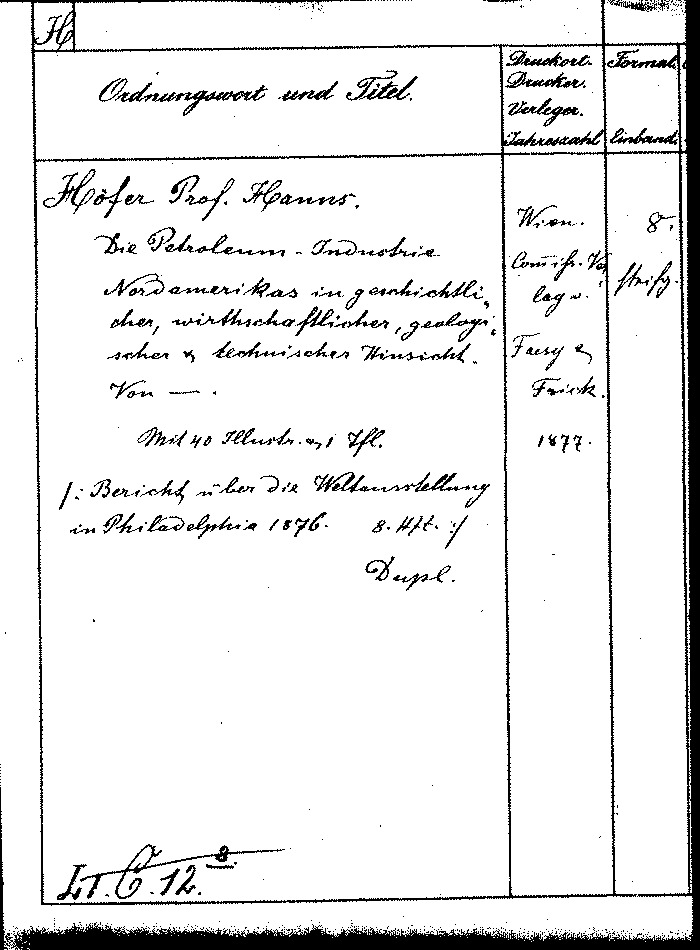 H
Ordnungswort und Titel.
Druckort.
Drucker.
Verleger.
Jahreszahl
Format.
Einband.
Höfer Prof. Hanns.
Die Petroleum-Industrie
Nordamerikas in geschichtli„
cher, wirthschaftlicher, geologi„
scher & technischer Hinsicht.
Von — .
Mit 40 Illustr. & 1 Tfl.
/: Bericht über die Weltausstellung
in Philadelphia 1876. 8. Hft. :/
Dupl.
Wien.
Com̅iss. Ver
lag v.
Faesy &
Frick.
1877.
8.
steifg.
12. 8.